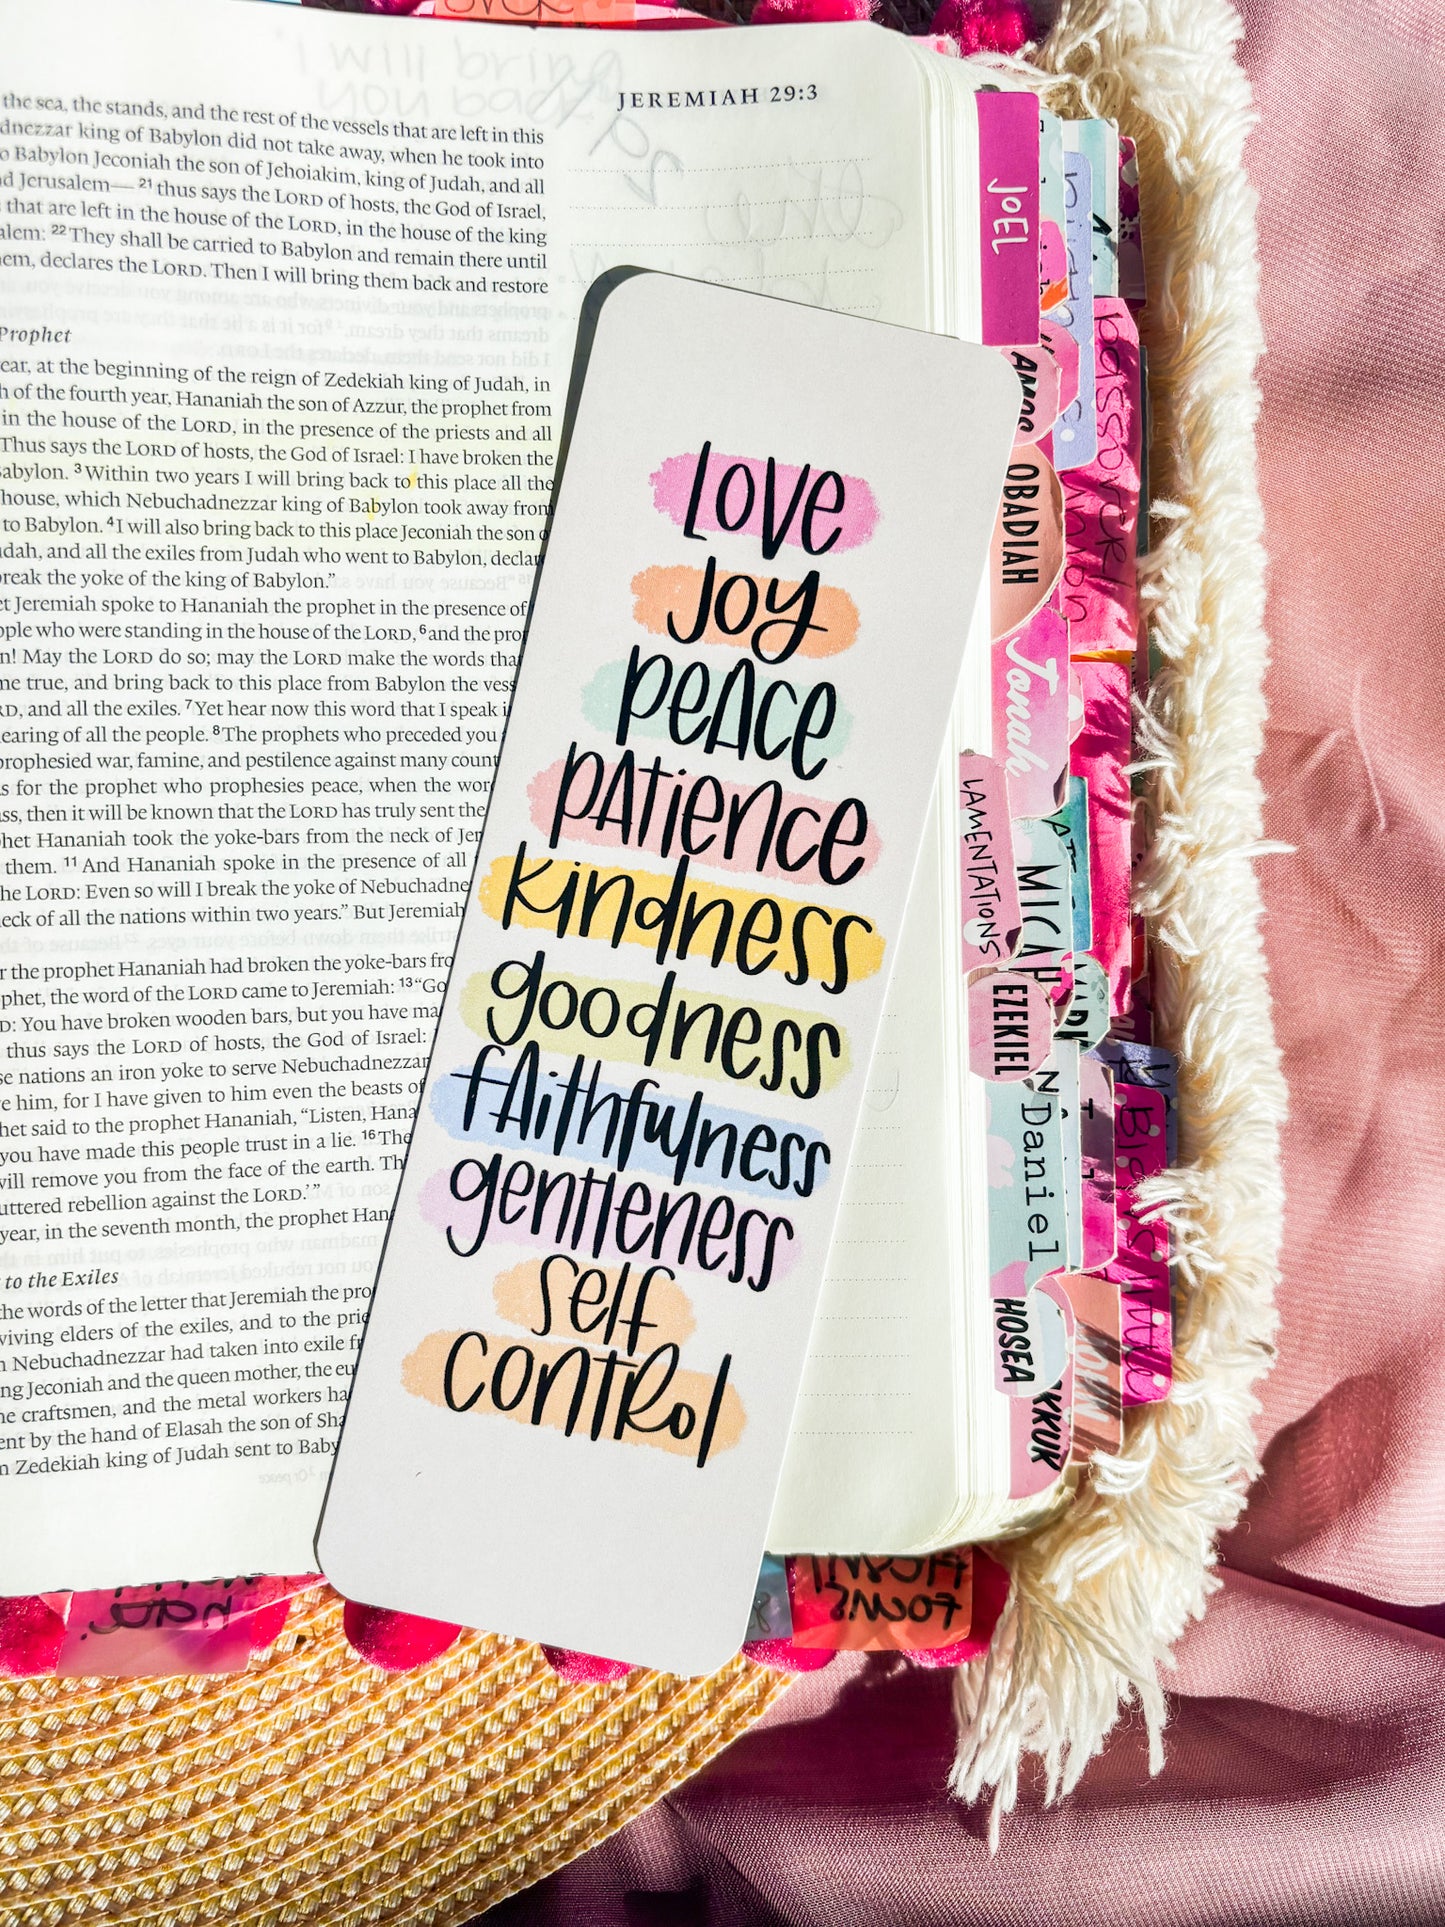 JEREMIAH 29:3
the sea, the stands, and the rest of the vessels that are left in this
king of Babylon did not take away, when he took into
Babylon Jeconiah the son of Jehoiakim, king of Judah, and all
Jerusalem— 21 thus says the LORD of hosts, the God of Israel,
that are left in the house of the LORD, in the house of the king
22 They shall be carried to Babylon and remain there until
declares the LORD. Then I will bring them back and restore
Prophet
at the beginning of the reign of Zedekiah king of Judah, in
of the fourth year, Hananiah the son of Azzur, the prophet from
in the house of the LORD, in the presence of the priests and all
Thus says the LORD of hosts, the God of Israel: I have broken the
3 Within two years I will bring back to this place all the
house, which Nebuchadnezzar king of Babylon took away from
to Babylon. 4 I will also bring back to this place Jeconiah the son
and all the exiles from Judah who went to Babylon,
the yoke of the king of Babylon.”
Jeremiah spoke to Hananiah the prophet in the presence of
who were standing in the house of the LORD, 6 and the
May the LORD do so; may the LORD make the words
true, and bring back to this place from Babylon the
and all the exiles. 7 Yet hear now this word that I speak
of all the people. 8 The prophets who preceded you
prophesied war, famine, and pestilence against many
for the prophet who prophesies peace, when the
then it will be known that the LORD has truly sent the
Hananiah took the yoke-bars from the neck of
them. 11 And Hananiah spoke in the presence of all
the LORD: Even so will I break the yoke of
neck of all the nations within two years.” But Jeremiah
the prophet Hananiah had broken the yoke-bars
the word of the LORD came to Jeremiah: 13 “Go
You have broken wooden bars, but you have
thus says the LORD of hosts, the God of Israel:
nations an iron yoke to serve Nebuchadnezzar
him, for I have given to him even the beasts of
said to the prophet Hananiah, “Listen,
you have made this people trust in a lie. 16
will remove you from the face of the earth.
uttered rebellion against the LORD.’”
year, in the seventh month, the prophet
to the Exiles
the words of the letter that Jeremiah the
elders of the exiles, and to the
Nebuchadnezzar had taken into exile
Jeconiah and the queen mother, the
craftsmen, and the metal workers
by the hand of Elasah the son of
Zedekiah king of Judah sent to
LOVE
JOY
PEACE
PATIENCE
KINDNESS
goodness
FAITHFULNESS
gentleness
self
CONTROL
JOEL
AMOS
OBADIAH
Jonah
LAMENTATIONS
MICAH
EZEKIEL
Daniel
HOSEA
passover